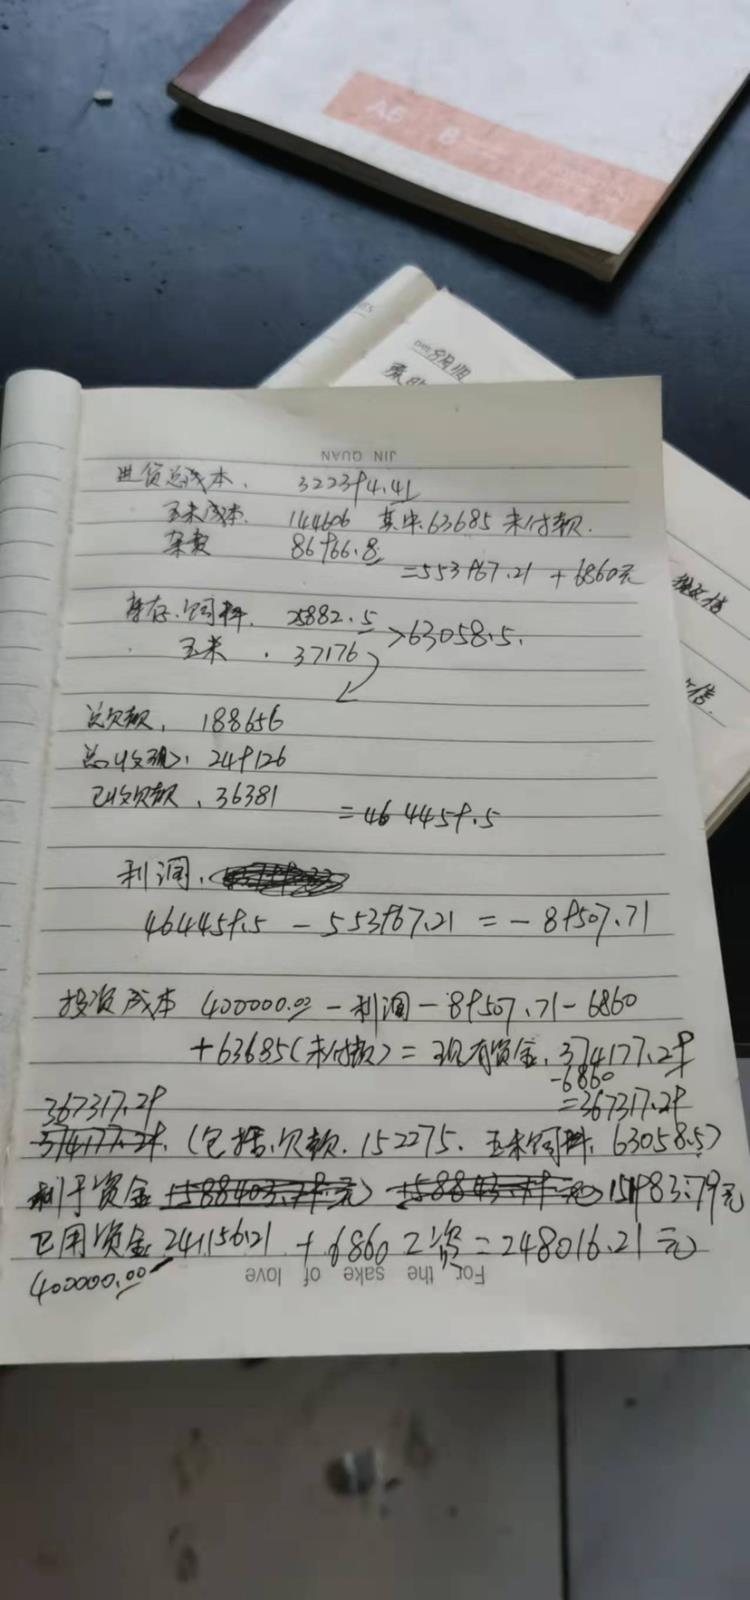 A5 B
JIN QUAN
进货总成本. 322394.41
玉米成本. 144606 其中.63685 未付款.
杂费 86966.8
=553967.21 +6860元
库存.饲料. 25882.5 >63058.5.
玉米. 37176
总欠款. 188656
总收现. 249126
已收欠款. 36381
=464459.5
利润.
464459.5 - 553967.21 = -89507.71
投资成本 400000.00 -利润-89507.71-6860
+63685(未付款) = 现有资金. 374177.29
-6860
367317.29 =367317.29
374177.29. (包括.欠款. 152275. 玉米饲料. 63058.5)
剩于资金 151983.79元
已用资金 241156.21 +6860工资=248016.21元
400000.00
For the sake of love